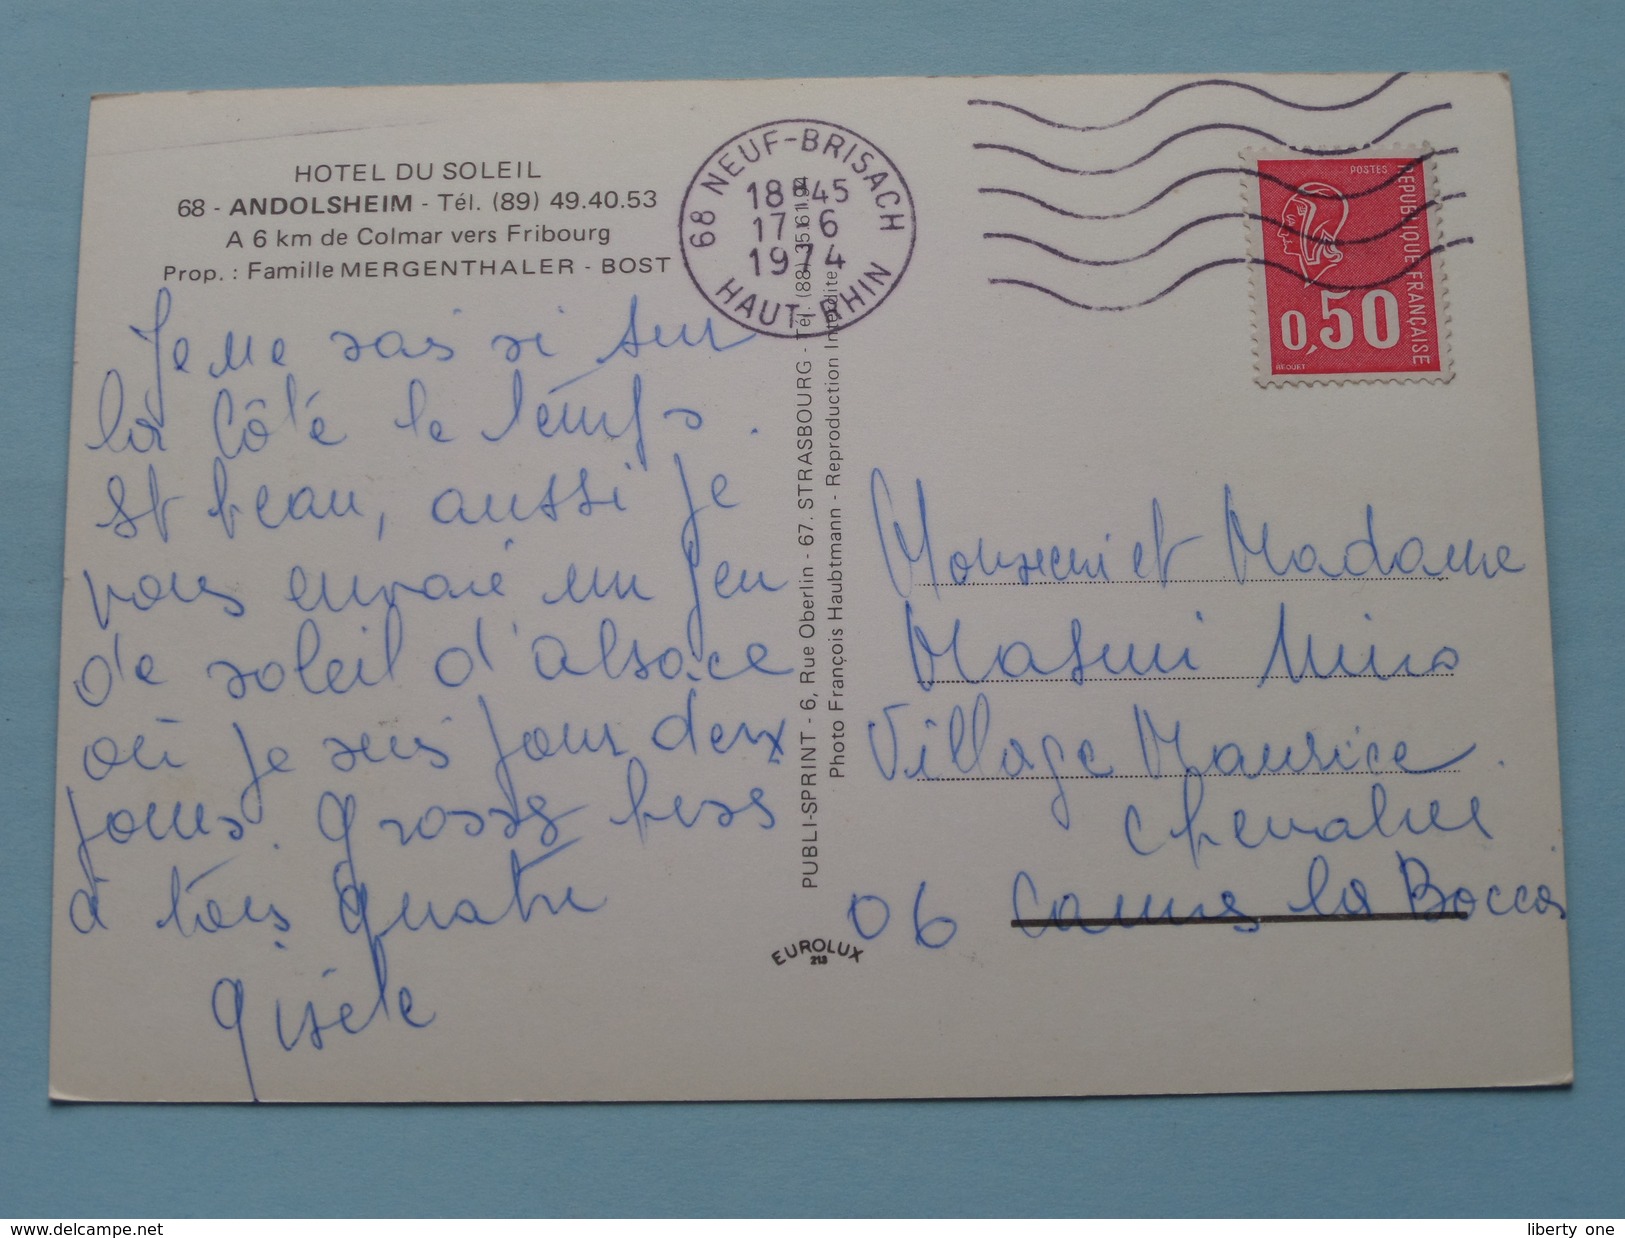 HOTEL DU SOLEIL
68 - ANDOLSHEIM - Tél. (89) 49.40.53
A 6 km de Colmar vers Fribourg
Prop. : Famille MERGENTHALER - BOST
Je me sais si sur
la Côté le temps
st beau, aussi je
vous envoie un peu
de soleil d'alsace
où je suis pour deux
jours. Grosses bises
à tous quatre
Gisèle
68 NEUF-BRISACH
18H45
17-6
1974
HAUT-RHIN
POSTES
REPUBLIQUE FRANÇAISE
0,50
PUBLI-SPRINT - 6, Rue Oberlin - 67. STRASBOURG - Tél. (88) 35.61.94
Photo François Haubtmann - Reproduction Interdite
EUROLUX
213
Monsieur et Madame
Masini Nino
Village Maurice
Chevalier
06 Cannes la Bocca
www.delcampe.net
liberty_one